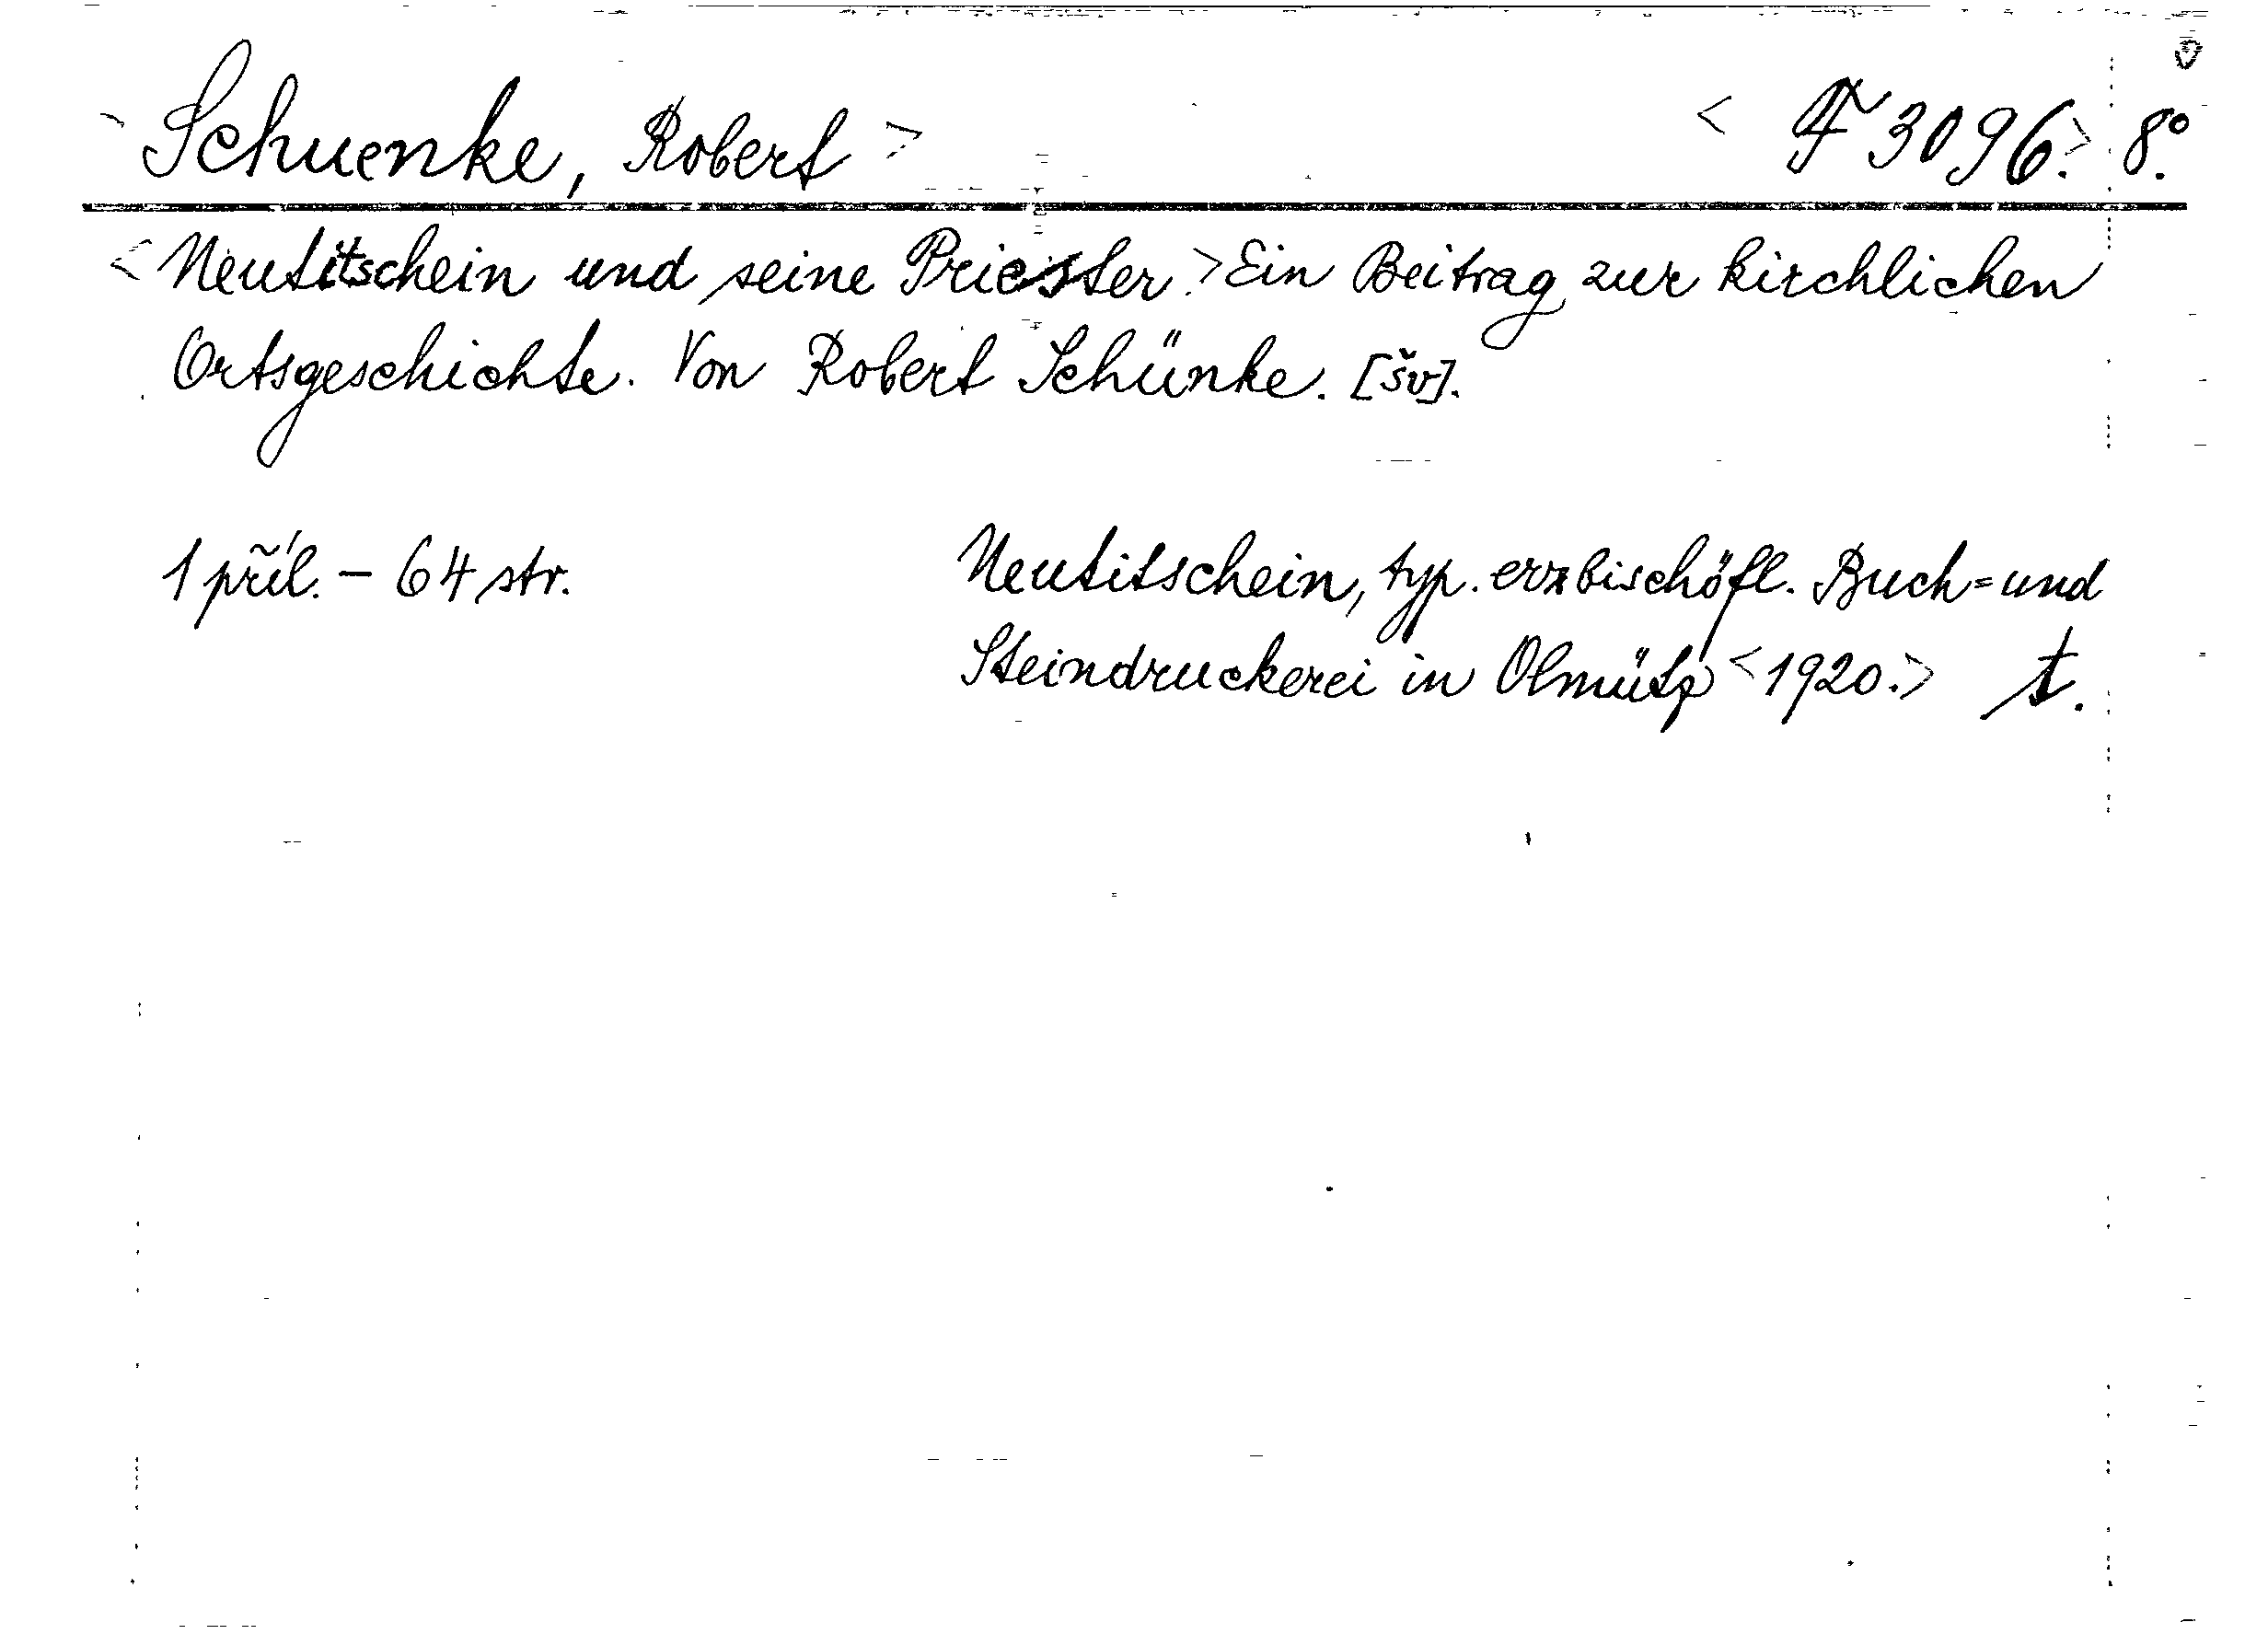 <Schuenke, Robert> <F 3096.> 8°.
<Neutitschein und seine Priester.> Ein Beitrag zur kirchlichen
Ortsgeschichte. Von Robert Schünke. [šv].
1 příl. - 64 str.
Neutitschein, typ. erzbischöfl. Buch= und
Steindruckerei in Olmütz <1920.> t.